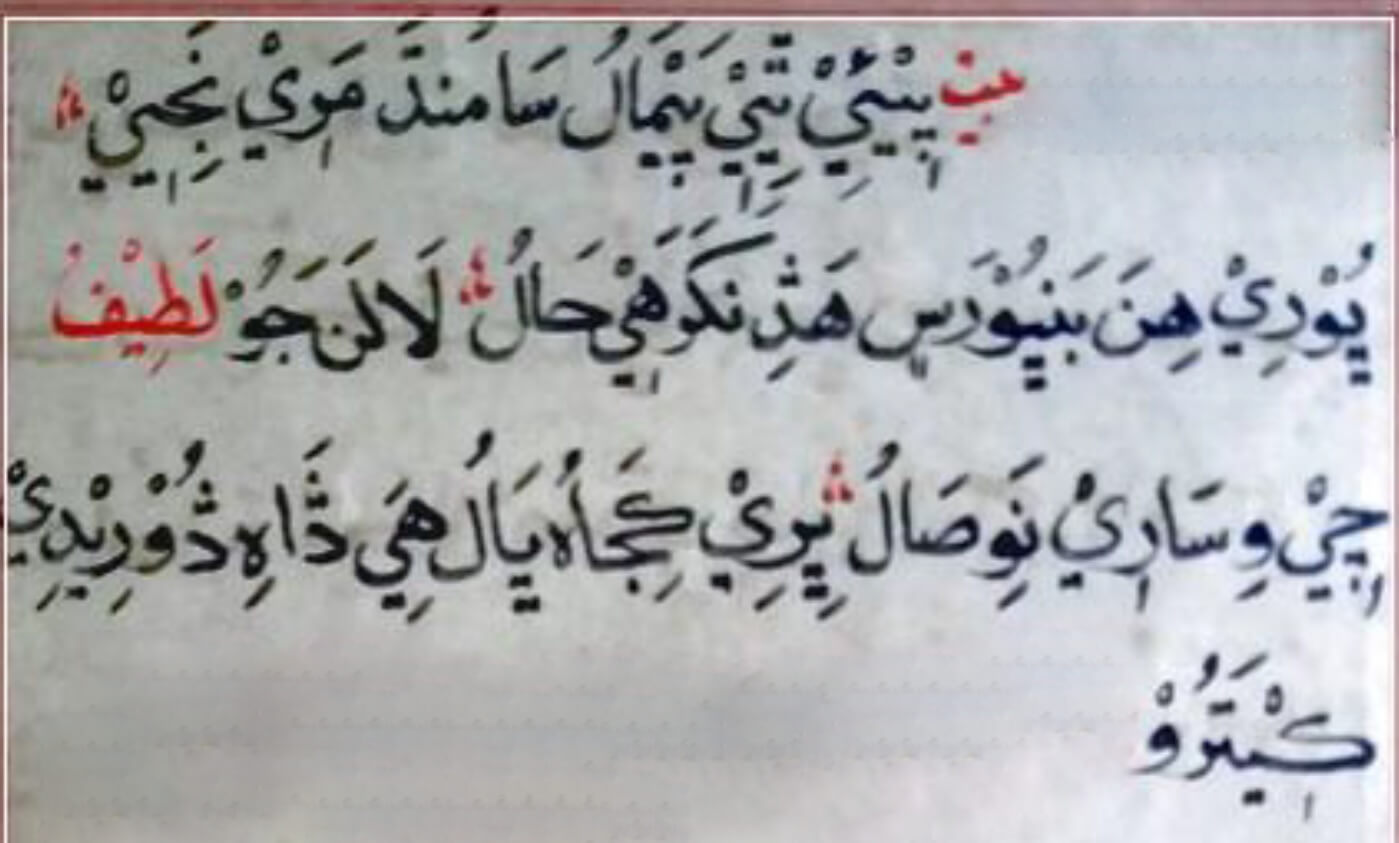 بيت پيْئيْ تِيَيْ پَيْمَالُ سَامُندَّ مَرِيْ نَجِيَيْ ؞
يُوْرِيْ هِنَ بَنيُوْرَسٍ هَڎِ نَكَوَهِيْ حَالُ ؞ لَالَنَ جَوُ لَطِيْفُ
جِيْ وِسَارِيْ نَوِصَالُ ؞ پِرِيْ كِجَاُه يَالُ هَيِ ڎَاهِ ڎُوْرِيْدِيْ
كيْتَرُوْ